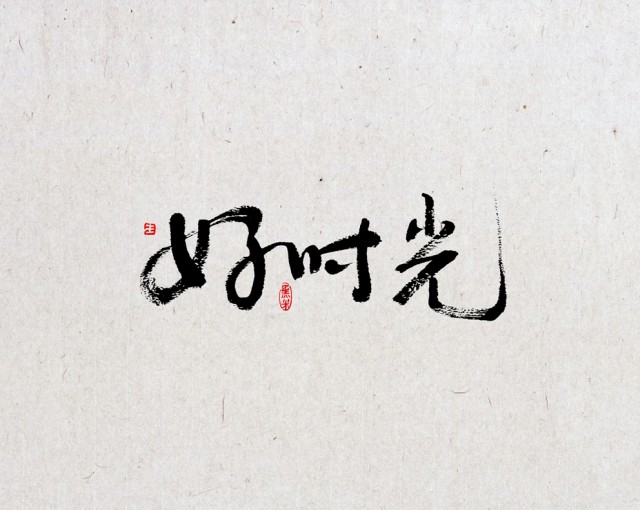 好时光